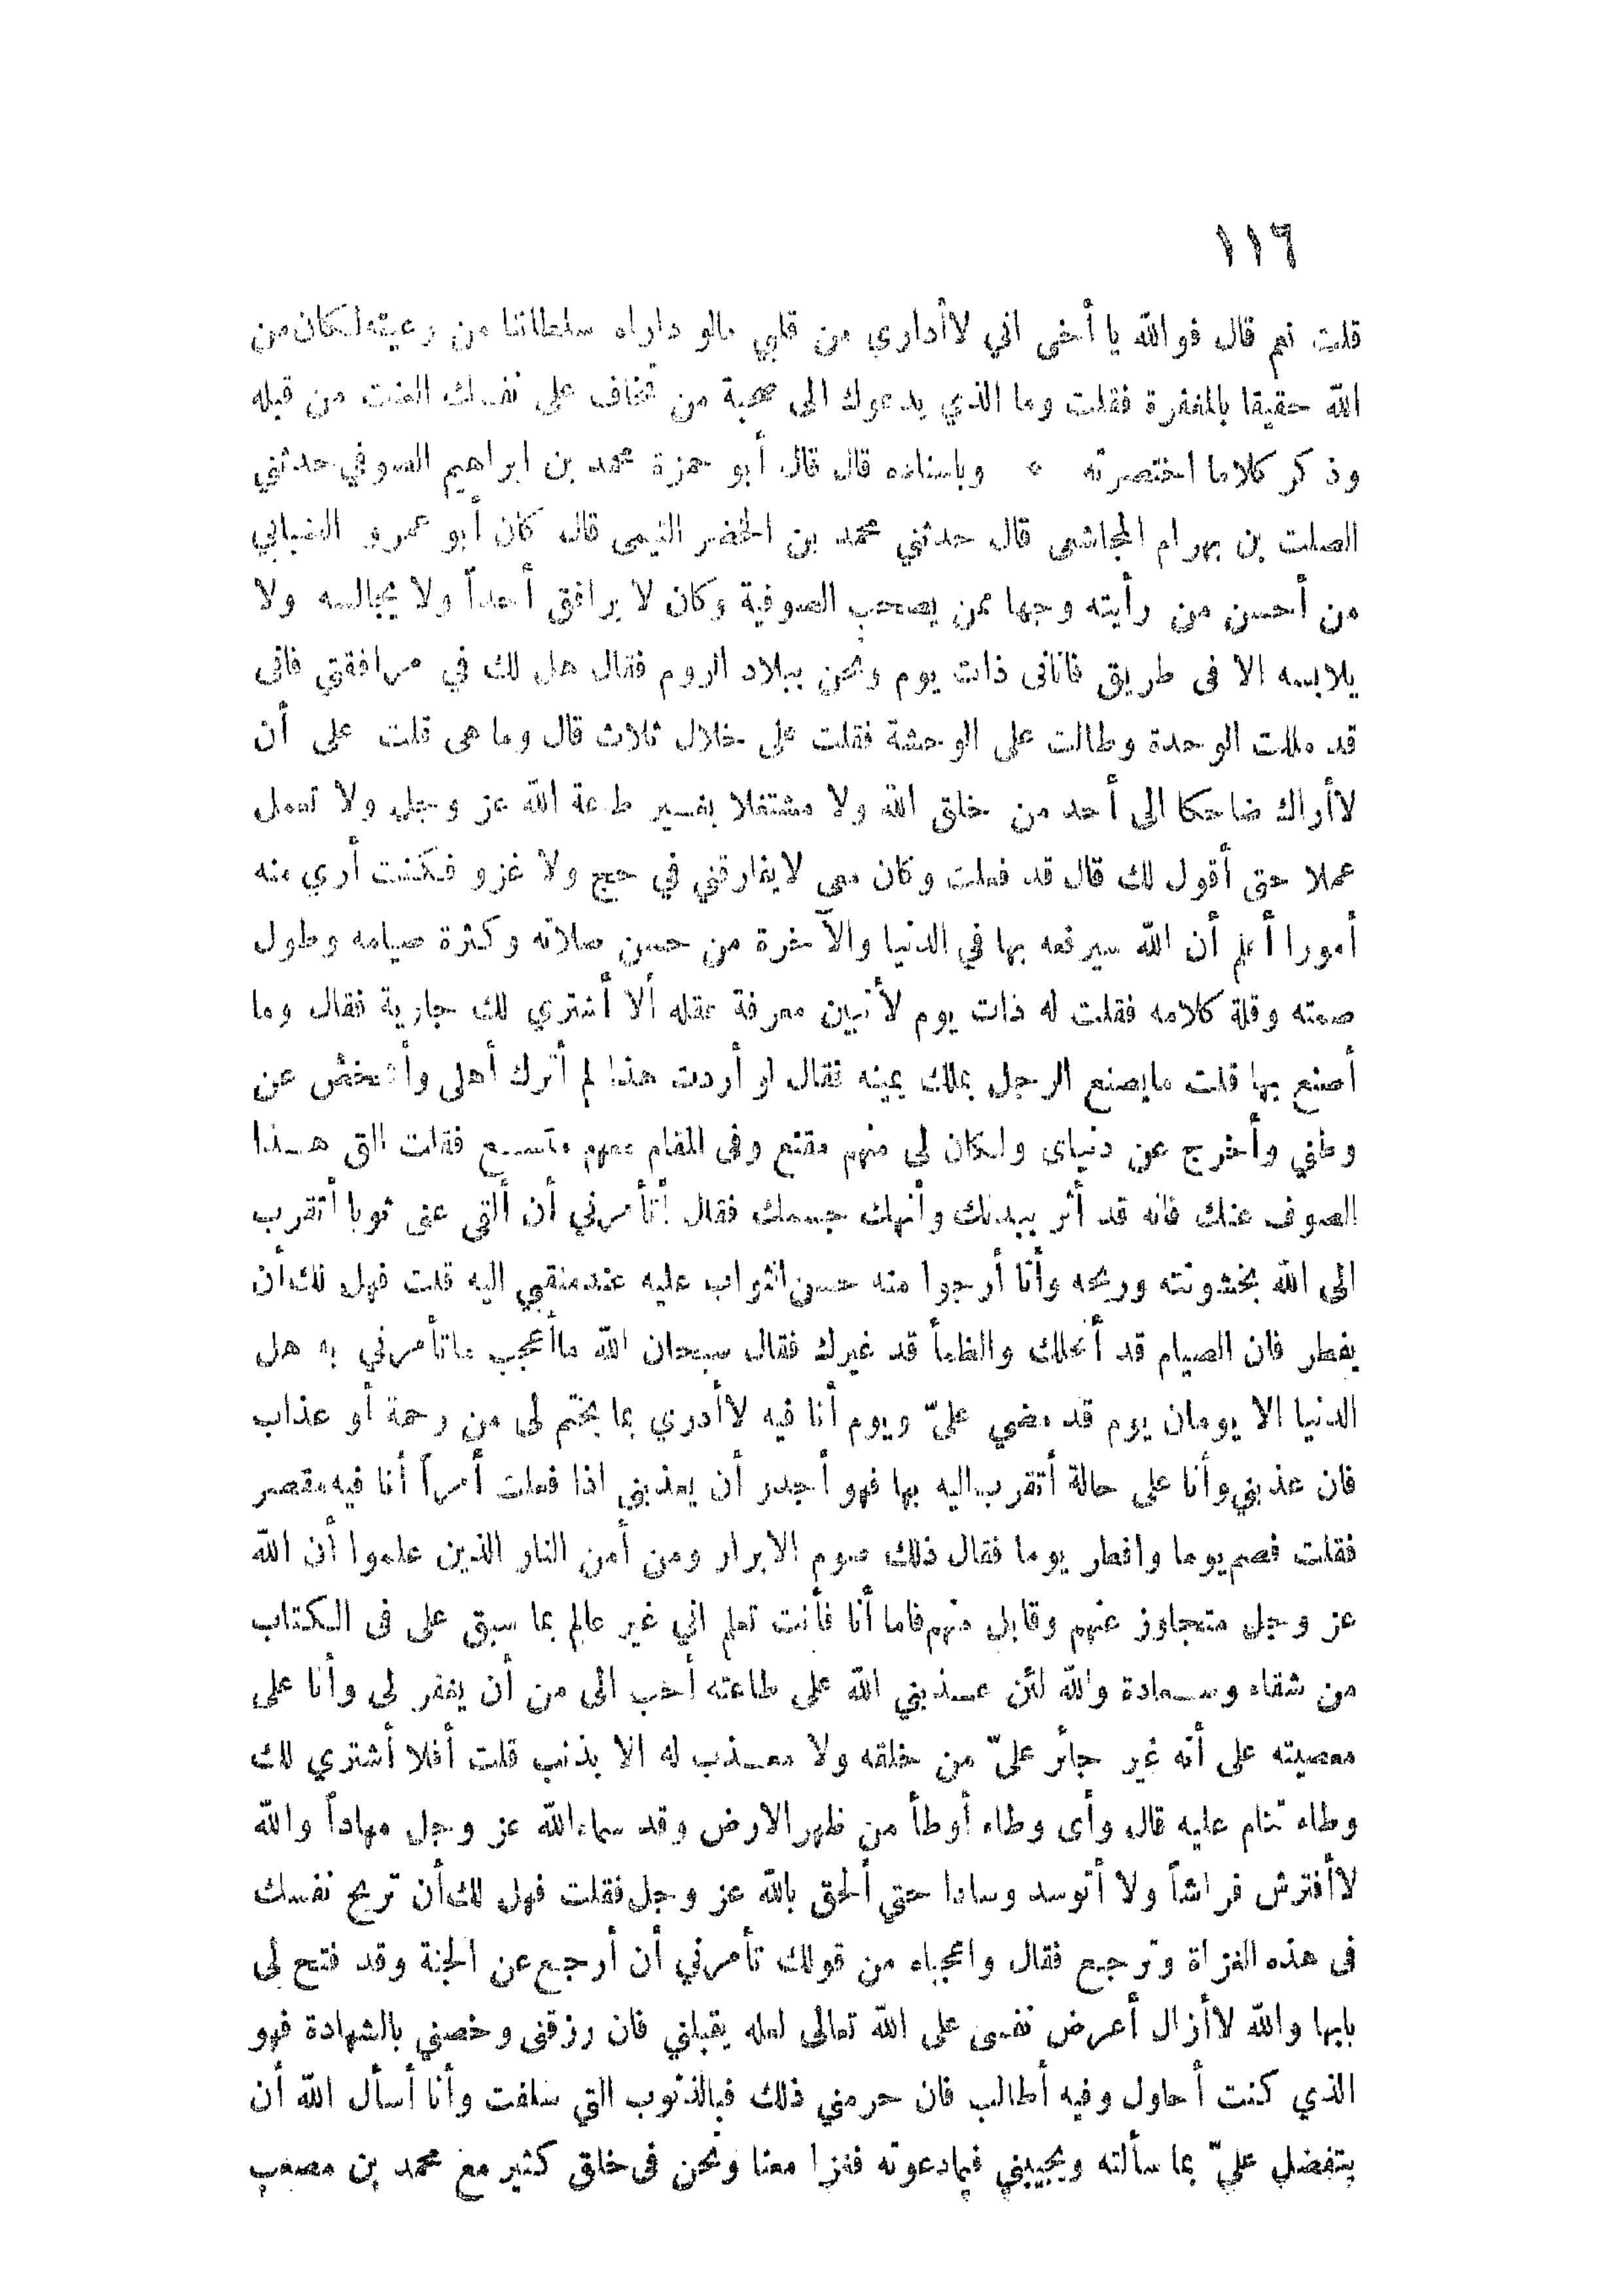 ١١٦
قلت نعم قال فوالله يا أخى اني لاأدارى من قلبي مالو داراه سلطاننا من رعيته لكان من
الله حقيقا بالمغفرة فقلت وما الذي يدعوك الى صحبة من تخاف على نفسك العنت من قبله
وذكر كلاما اختصرته * وباسناده قال قال أبو حمزة محمد بن ابراهيم الصوفي حدثني
الصلت بن بهرام المجاشعى قال حدثني محمد بن الخضر التيمى قال كان أبو عمرو
من أحسن من رأيته وجها ممن يصحب الصوفية وكان لا يرافق أحداً ولا يجالسه ولا
يلابسه الا فى طريق فاتانى ذات يوم ونحن ببلاد الروم فقال هل لك في مرافقتي فانى
قد مللت الوحدة وطالت على الوحشة فقلت على خلال ثلاث قال وما هى قلت على أن
لاأراك ضاحكا الى أحد من خلق الله ولا مشتغلا بغير طاعة الله عز وجل ولا تعمل
عملا حتى أقول لك قال قد فعلت وكان معى لايفارقني في حج ولا غزو فكنت أري منه
أمورا أعلم أن الله سيرفعه بها في الدنيا والآخرة من حسن صلاته وكثرة صيامه وطول
صمته وقلة كلامه فقلت له ذات يوم لأتبين معرفة عقله ألا أشتري لك جارية فقال وما
أصنع بها قلت مايصنع الرجل بملك يمينه فقال لو أردت هذا لم أترك أهلى وأشخص عن
وطني وأخرج عن دنياى ولكان لى منهم مقنع وفى المقام معهم متسع فقلت الق هذا
الصوف عنك فانه قد أثر ببدنك وأنهك جسمك فقال أتأمرني أن ألقى عنى ثوبا أتقرب
الى الله بخشونته وريحه وأنا أرجوا منه حسن الثواب عليه عند منقلبي اليه قلت فهل لك أن
يفطر فان الصيام قد أنحلك والظمأ قد غيرك فقال سبحان الله ماأعجب ماتأمرني به هل
الدنيا الا يومان يوم قد مضي علىّ ويوم أنا فيه لاأدري بما يختم لى من رحمة أو عذاب
فان عذبني وأنا على حالة أتقرب اليه بها فهو أجدر أن يعذبني اذا فعلت أمراً أنا فيه مقصر
فقلت فصم يوما وافطر يوما فقال ذلك صوم الابرار ومن أمن النار الذين علموا أن الله
عز وجل متجاوز عنهم وقابل منهم فاما أنا فأنت تعلم اني غير عالم بما سبق على فى الكتاب
من شقاء وسعادة والله لئن عذبني الله على طاعته أحب الى من أن يغفر لى وأنا على
معصيته على أنه غير جائر علىّ من خلقه ولا معذب له الا بذنب قلت أفلا أشتري لك
وطاء تنام عليه قال وأى وطاء أوطأ من ظهر الارض وقد سماه الله عز وجل مهاداً والله
لاأفترش فراشاً ولا أتوسد وسادا حتى ألحق بالله عز وجل فقلت فهل لك أن تريح نفسك
فى هذه الغزاة وترجع فقال واعجباه من قولك تأمرني أن أرجع عن الجنة وقد فتح لى
بابها والله لاأزال أعرض نفسى على الله تعالى لعله يقبلني فان رزقنى وخصني بالشهادة فهو
الذي كنت أحاول وفيه أطالب فان حرمني ذلك فبالذنوب التي سلفت وأنا أسأل الله أن
يتفضل علىّ بما سألته ويجيبني فيما دعوته فغزا معنا ونحن فى خلق كثير مع محمد بن مصعب